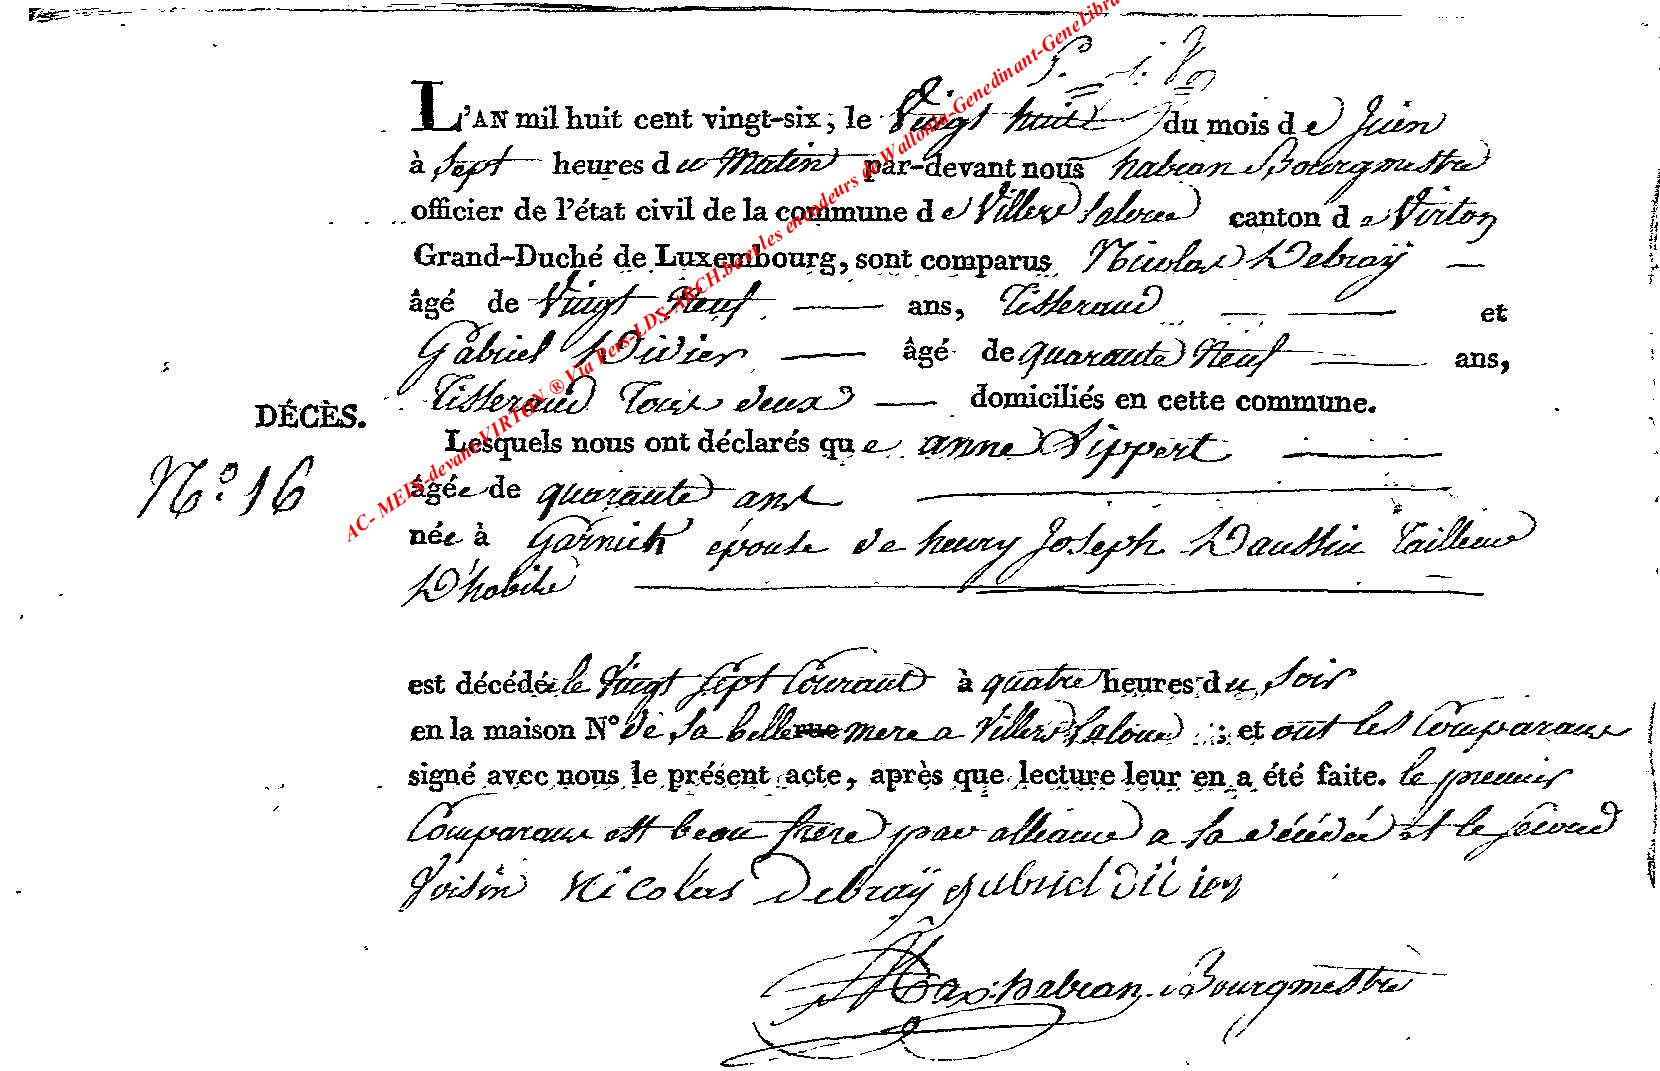 L'AN mil huit cent vingt-six, le Vingt huit du mois de Juin
à Sept heures du Matin par-devant nous habran Bourgmestre
officier de l'état civil de la commune de Villers Laloue canton de Virton
Grand-Duché de Luxembourg, sont comparus Nicolas Debraÿ
âgé de Vingt Neuf ans, Tisserand et
Gabriel Didier âgé de quarante Neuf ans,
Tisserand Tous deux domiciliés en cette commune.
DÉCÈS.
Lesquels nous ont déclarés que anne Lippert
N.º 16
âgée de quarante ans
née à Garnich épouse de henry Joseph Tailleur
D'habits
est décédée le Vingt Sept Courant à quatre heures du Soir
en la maison Nº de Sa belle rue mere a Villers Laloue ; et ont les Comparans
signé avec nous le présent acte, après que lecture leur en a été faite. le premier
Comparans est beau frere par alliance a la décédée et le second
Voisin Nicolas Debraÿ gabriel Didier
habran Bourgmestre
AC- MEIX-devant-VIRTON ® Via Pers-LDS-ARCH.be et les encodeurs de Wallonia-Genedinant-GeneLibra